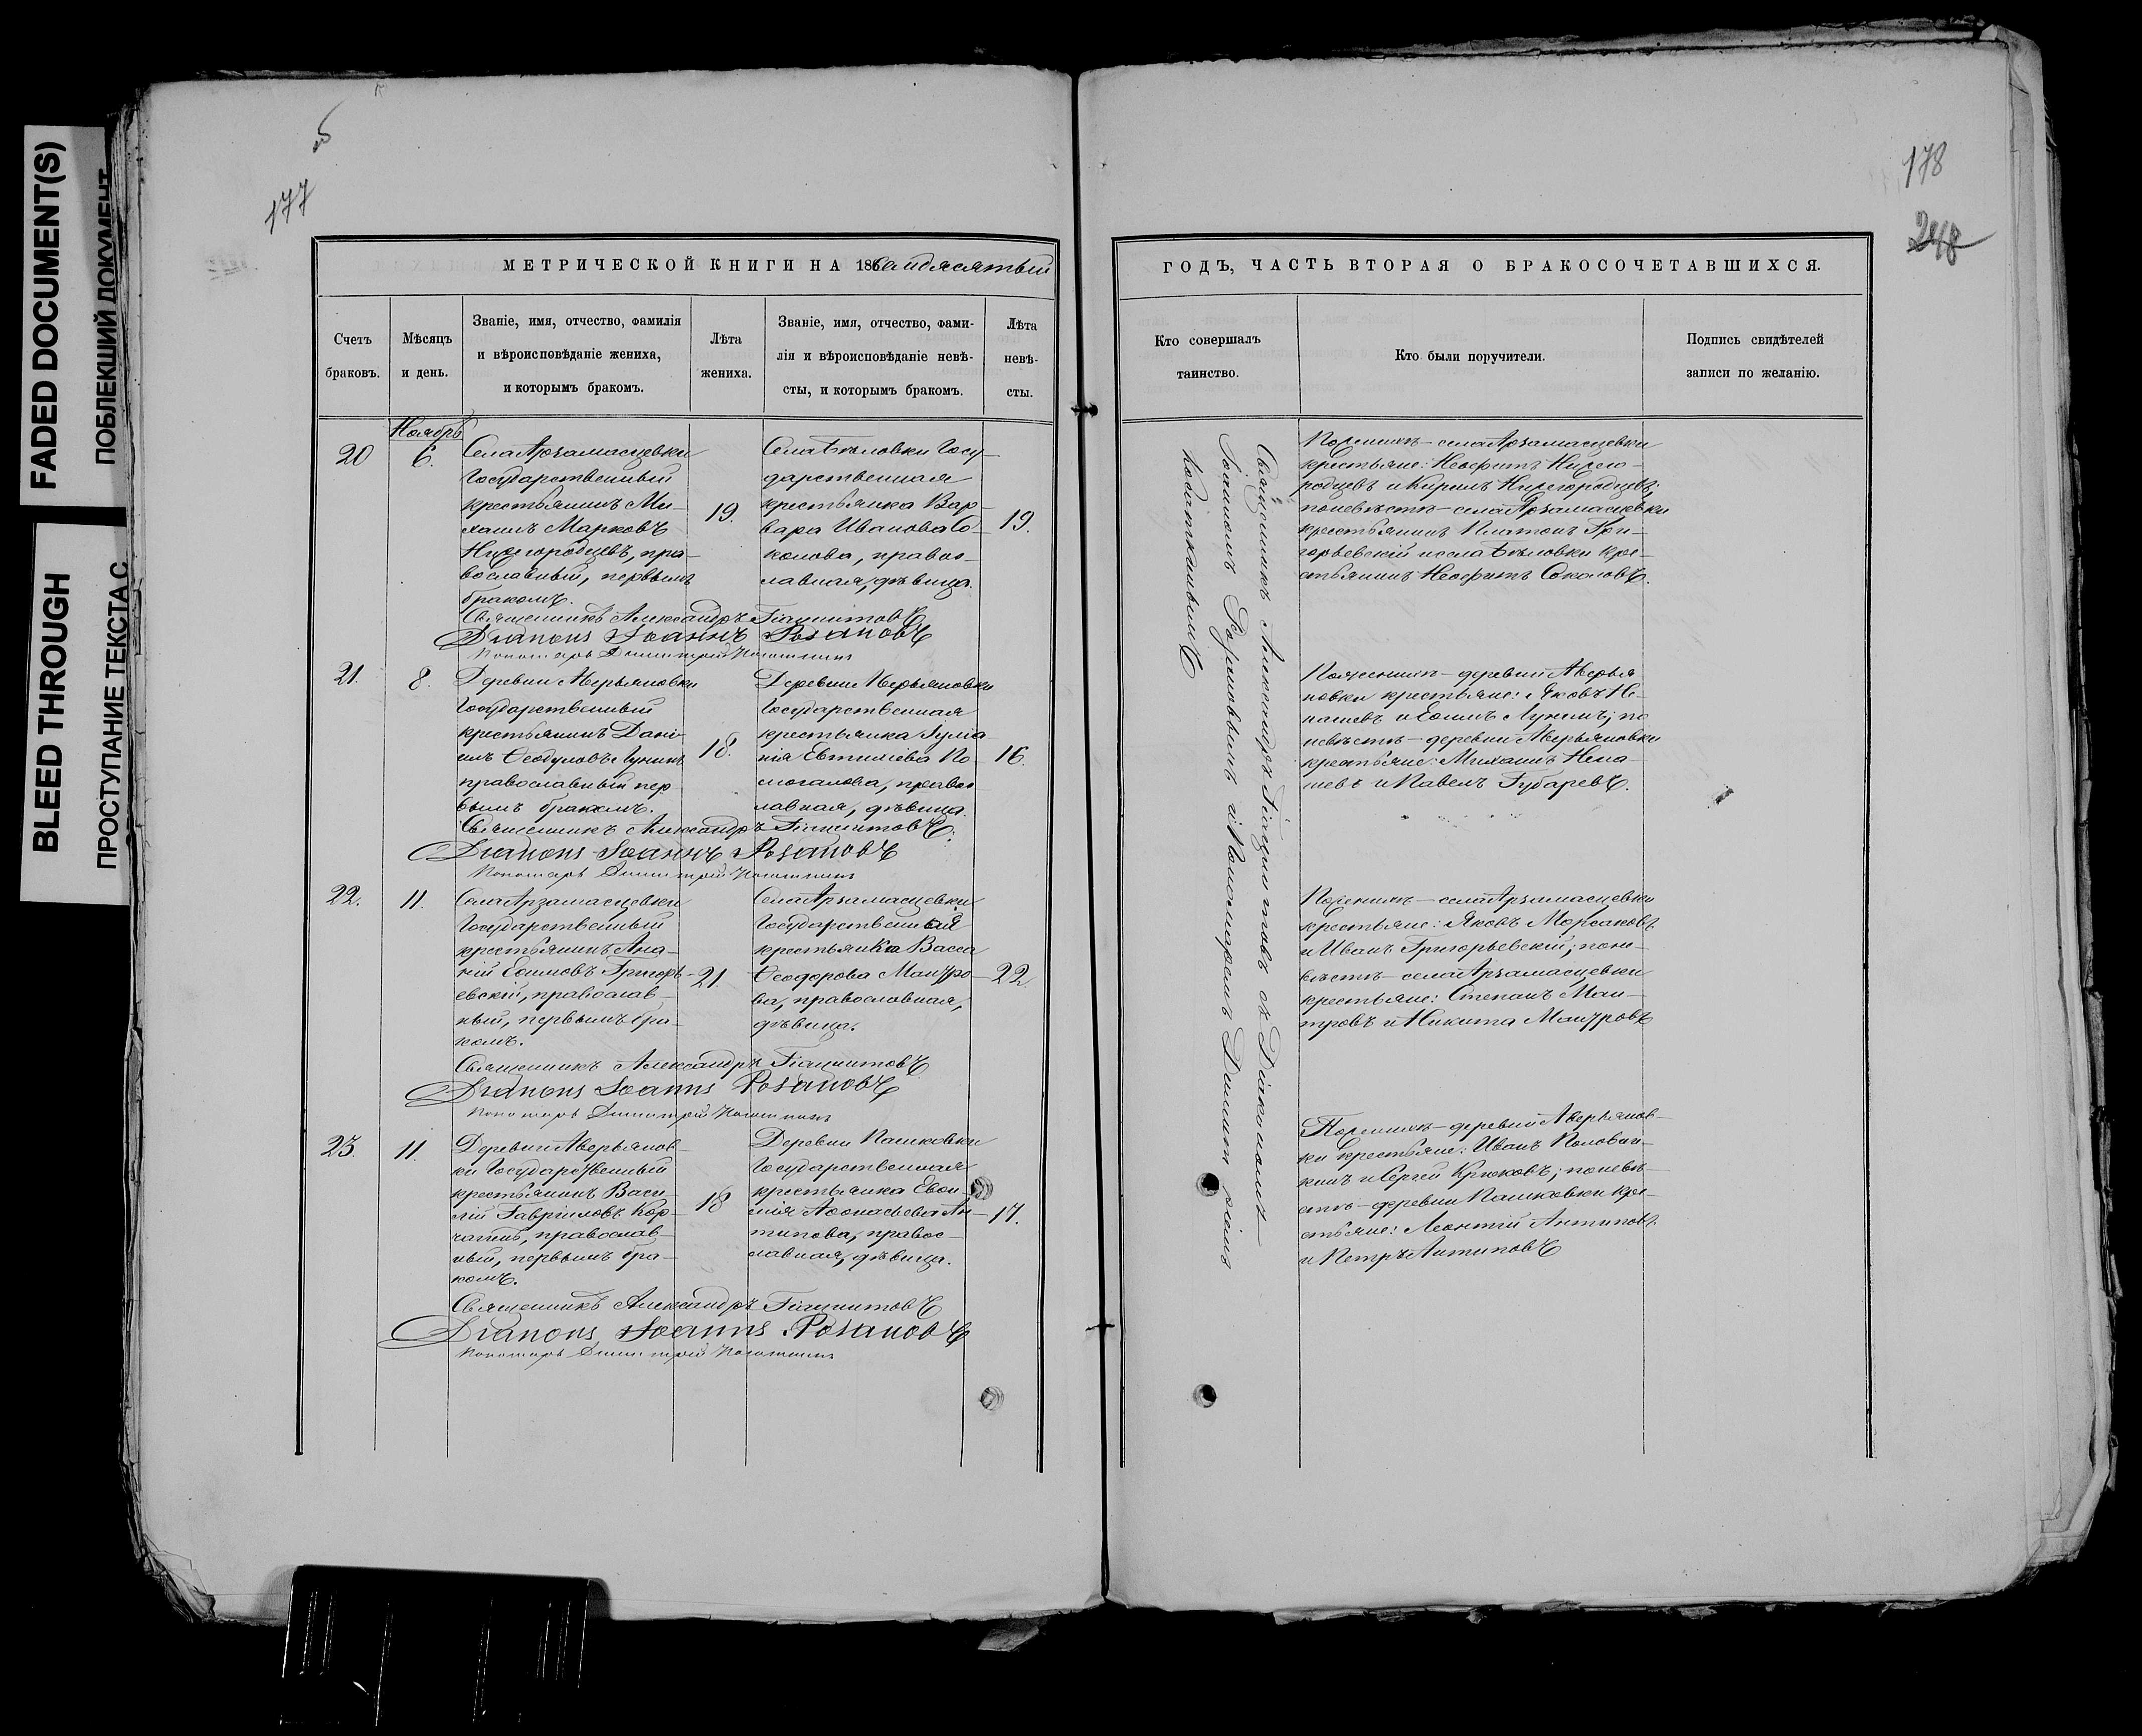 FADED DOCUMENT(S)
ПОБЛЕКШИЙ ДОКУМЕНТ
BLEED THROUGH
ПРОСТУПАНИЕ ТЕКСТА С
177
МЕТРИЧЕСКОЙ КНИГИ НА 186
Счетъ браковъ.
Мѣсяцъ и день.
Званіе, имя, отчество, фамилія
и вѣроисповѣданіе жениха,
и которымъ бракомъ.
Лѣта жениха.
Званіе, имя, отчество, фами-
лія и вѣроисповѣданіе невѣ-
сты, и которымъ бракомъ.
Лѣта невѣ-
сты.
Ноябрь
20
6.
Села Арзамасцевки
Государственный
крестьянинъ Ми-
хаилъ Марковъ
Нижегородцевъ, пра-
вославный, первымъ
бракомъ.
19.
Села Бѣловки Госу-
дарственная
крестьянка Вар-
вара Иванова Со-
колова, правос-
лавная, дѣвица.
19.
Священникъ Александръ Гіацинтовъ
Діаконъ Іоаннъ Розановъ
Пономарь Димитрій
21.
8.
Деревни Аверьяновки
Государственный
крестьянинъ Дані-
илъ Ѳеодуловъ Лунинъ
православный пер
вымъ бракомъ.
18.
Деревни Аверьяновки
Государственная
крестьянка Іуліа
нія Евтихіева По-
могалова, правос
лавная, дѣвица.
16.
Священникъ Александръ Гіацинтовъ.
Діаконъ Іоаннъ Розановъ
Пономарь Димитрій
22.
11.
Села Арзамасцевки
Государственный
крестьянинъ Ана-
ній Ефимовъ Григорь-
евскій, православ-
ный, первымъ бра-
комъ.
21.
Села Арзамасцевки
Государственная
крестьянка Васса
Ѳеодорова
православная,
дѣвица.
22.
Священникъ Александръ Гіацинтовъ
Діаконъ Іоаннъ Розановъ
Пономарь Димитрій
23.
11.
Деревни Аверьянов-
ки Государственный
крестьянинъ Васи-
лій Гавриловъ Кор-
чагинъ, православ-
ный, первымъ бра-
комъ.
18
Деревни Пашковки
Государственная
крестьянка Евфи-
мія Аѳонасьева Ан-
типова, правос-
лавная, дѣвица.
17.
Священникъ Александръ Гіацинтовъ
Діаконъ Іоаннъ Розановъ
Пономарь Димитрій
178
248
ГОДЪ, ЧАСТЬ ВТОРАЯ О БРАКОСОЧЕТАВШИХСЯ.
Кто совершалъ
таинство.
Кто были поручители.
Подпись свидѣтелей
записи по желанію.
Священникъ Александръ Гіацинтовъ съ Діакономъ
Іоанномъ Розановымъ и Пономаремъ Димитріемъ
По женихѣ – села Арзамасцевки
крестьяне: Неофитъ Нижего-
родцевъ и Кирилъ Нижегородцевъ;
по невѣстѣ – села Арзамасцевки
крестьянинъ Платонъ Гри-
горьевскій и села Бѣловки кре-
стьянинъ Неофитъ Соколовъ.
По женихѣ – деревни Аверья
новки крестьяне: Яковъ Не-
нашевъ и Ефимъ Лунинъ; по
невѣстѣ – деревни Аверьяновки
крестьяне: Михаилъ Нена-
шевъ и Павелъ Губаревъ.
По женихѣ – села Арзамасцевки
крестьяне: Яковъ
и Иванъ Григорьевскій; по не-
вѣстѣ – села Арзамасцевки
крестьяне: Степанъ
и Никита
По женихѣ – деревни Аверьянов-
ки крестьяне: Иванъ Половин-
кинъ и Сергей Крюковъ; по невѣ-
стѣ – деревни Пашковки кре-
стьяне: Леонтій Антиповъ
и Петръ Антиповъ